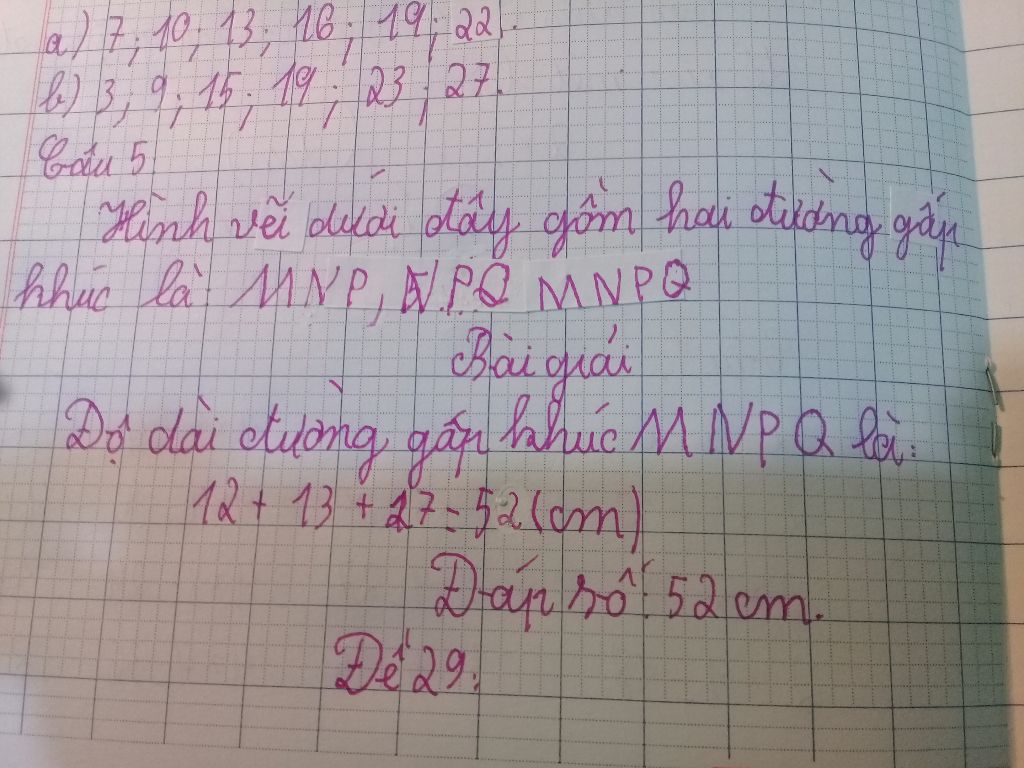 a) 7; 10; 13; 16; 19; 22.
b) 3; 9; 15; 19; 23; 27.
Câu 5
Hình vẽi dưới đây gồm hai đường gấp
khúc là: MNP, NPQ MNPQ
Bài giải
Độ dài đường gấp khúc MNPQ là:
12 + 13 + 27 = 52 (cm)
Đáp số: 52 cm.
Đề 29: